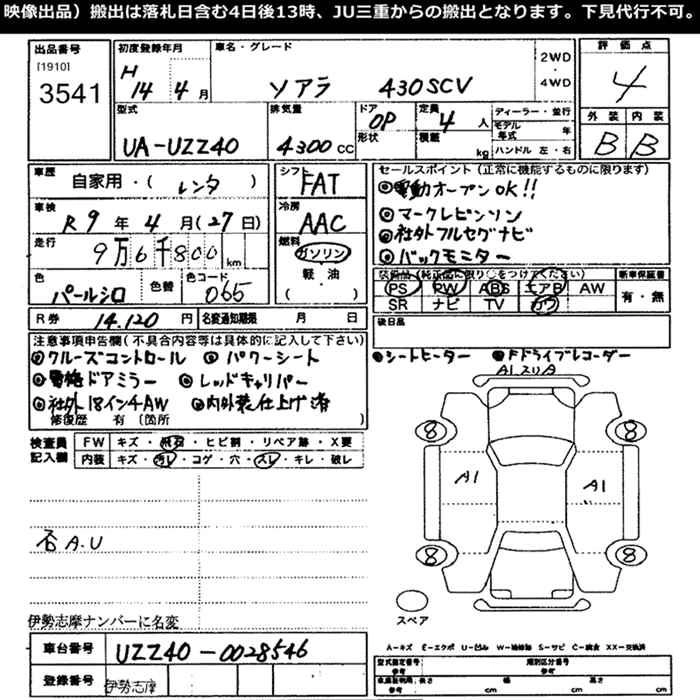 映像出品）搬出は落札日含む4日後13時、JU三重からの搬出となります。下見代行不可。
出品番号 [1910] 3541
初度登録年月 H 14 4 月
車名・グレード ソアラ 430SCV
2WD・4WD
評価点 4
型式 UA-UZZ40
排気量 4300 CC
ドア形状 OP
定員 4 人
積載 kg
ディーラー・並行
モデル年式 年
ハンドル 左・右
外装 B 内装 B
車歴 自家用・( レンタ )
シフト FAT
車検 R 9 年 4 月(27日)
冷房 AAC
走行 9万6千800 km
燃料 ガソリン 軽・油 ( )
色 パールシロ 色替 色コード 065
R券 14.120 円 名変通知期限 月 日
セールスポイント (正常に機能するものに限ります)
◎電動オープンOK!!
◎マークレビンソン
◎社外フルセグナビ
◎バックモニター
装備品 (純正品に限り○をつけてください)
PS PW ABS エアB AW
SR ナビ TV カワ
新車保証書 有・無
後日品
注意事項申告欄 (不具合内容等は具体的に記入して下さい)
◎クルーズコントロール ◎パワーシート
◎シートヒーター ◎ドライブレコーダー
◎電格ドアミラー ◎レッドキャリパー
◎社外18インチAW ◎内外装仕上げ済
修復歴 有 (箇所
検査員記入欄
FW キズ・飛石・ヒビ割・リペア跡・X要
内装 キズ・汚レ・コゲ・穴・スレ・キレ・破レ
A1スリA
8 8
A1 A1
8 8
スペア
否 A.U
伊勢志摩ナンバーに名変
車台番号 UZZ40-0028546
登録番号 伊勢志摩
A-キズ E-エクボ U-凹ル W-補修跡 S-サビ C-腐食 XX-交換済
型式指定番号 参考 類別区分番号 参考
長さ 参考 cm 幅 cm 高さ cm